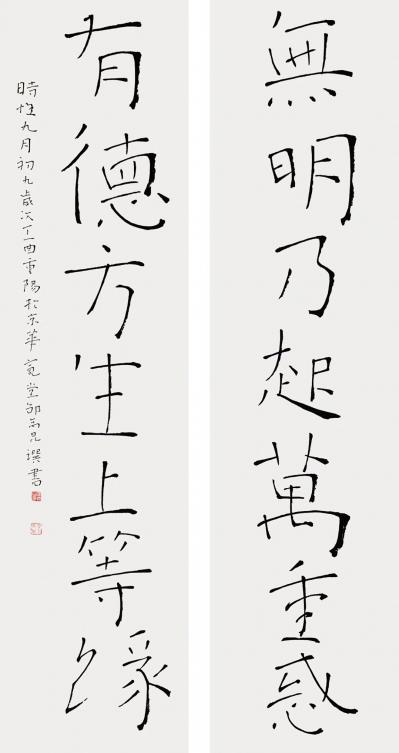 無明乃起萬重惑
有德方生上等緣
時惟九月初九歲次丁酉重陽於京華寬堂鄒
撰書